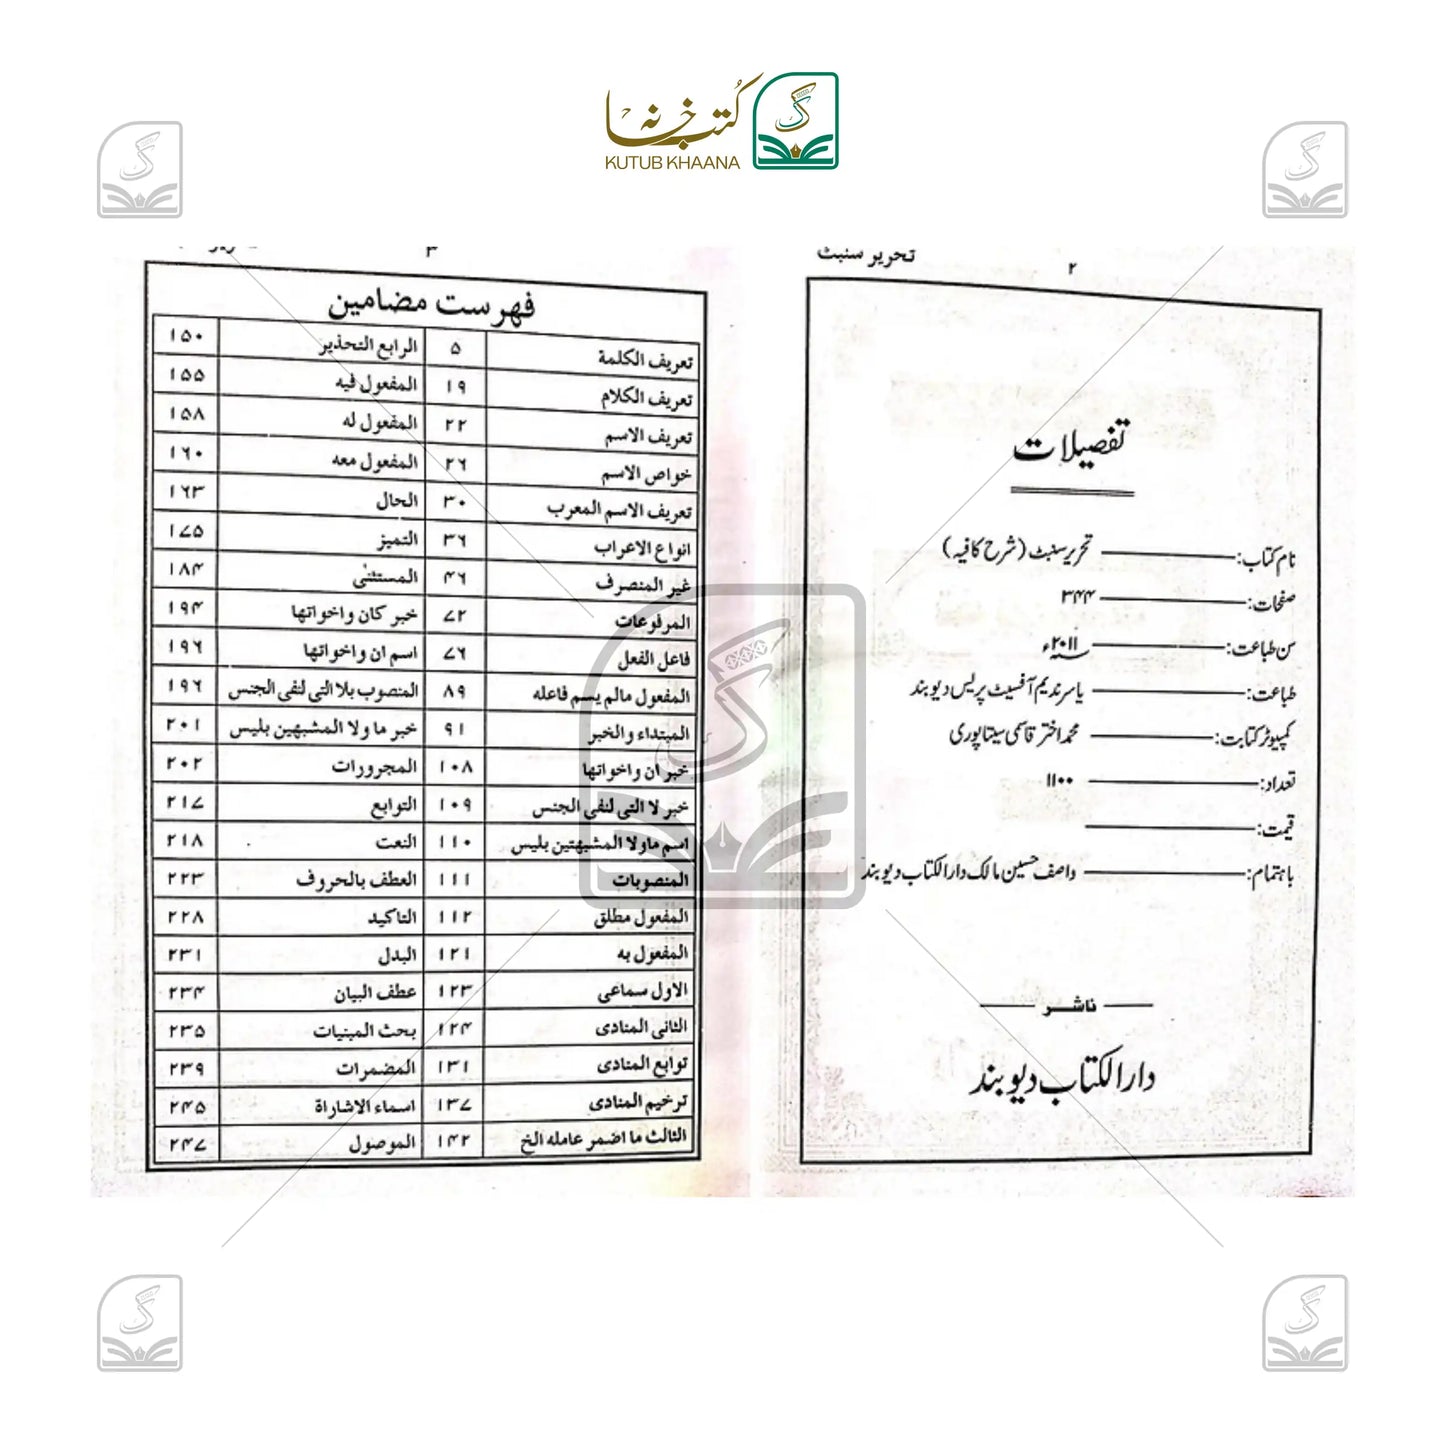 کتب خانہ
KUTUB KHAANA
۲ تحریر سنبٹ
تفصیلات
نام کتاب: تحریر سنبٹ (شرح کافیہ)
صفحات: ۳۴۴
سن طباعت: ۲۰۱۱ء
طباعت: یاسر ندیم آفسیٹ پریس دیوبند
کمپیوٹر کتابت: محمد اختر قاسمی سیتاپوری
تعداد: ۱۱۰۰
قیمت:
باہتمام: واصف حسین مالک دارالکتاب دیوبند
ناشر
دارالکتاب دیوبند
۳
فہرست مضامین
تعریف الکلمة ۵ الرابع التحذیر ۱۵۰
تعریف الکلام ۱۹ المفعول فیه ۱۵۵
تعریف الاسم ۲۲ المفعول له ۱۵۸
خواص الاسم ۲۶ المفعول معه ۱۶۰
تعریف الاسم المعرب ۳۰ الحال ۱۶۳
انواع الاعراب ۳۶ التمیز ۱۷۵
غیر المنصرف ۴۶ المستثنٰی ۱۸۴
المرفوعات ۷۲ خبر کان واخواتها ۱۹۴
فاعل الفعل ۷۶ اسم ان واخواتها ۱۹۶
المفعول مالم یسم فاعله ۸۹ المنصوب بلا التی لنفی الجنس ۱۹۶
المبتداء والخبر ۹۱ خبر ما ولا المشبهین بلیس ۲۰۱
خبر ان واخواتها ۱۰۸ المجرورات ۲۰۲
خبر لا التی لنفی الجنس ۱۰۹ التوابع ۲۱۷
اسم ماولا المشبهتین بلیس ۱۱۰ النعت ۲۱۸
المنصوبات ۱۱۱ العطف بالحروف ۲۲۳
المفعول مطلق ۱۱۲ التاکید ۲۲۸
المفعول به ۱۲۱ البدل ۲۳۱
الاول سماعی ۱۲۳ عطف البیان ۲۳۴
الثانی المنادی ۱۲۴ بحث المبنیات ۲۳۵
توابع المنادی ۱۳۱ المضمرات ۲۳۹
ترخیم المنادی ۱۳۷ اسماء الاشاراة ۲۴۵
الثالث ما اضمر عامله الخ ۱۴۲ الموصول ۲۴۷